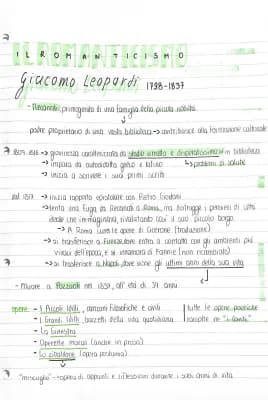 IL ROMANTICISMO
Giacomo Leopardi 1798-1837
- Recanati, primogenito di una famiglia della piccola nobiltà
padre proprietario di una vasta biblioteca → contribuisce alla formazione culturale
1809-1816 → giovinezza caratterizzata da studio "matto e disperatissimo" in biblioteca
→ impara da autodidatta greco e latino → problemi di salute
→ inizia a scrivere i suoi primi scritti
dal 1817 → inizia rapporto epistolare con Pietro Giordani
→ tenta una fuga da Recanati a Roma, ma distrugge i pensieri di città
ideale che immaginava, rivalutando così il suo piccolo borgo
→ A Roma cura le opere di Cicerone (traduzione)
→ si trasferisce a Firenze dove entra a contatto con gli ambienti più
vivaci dell'epoca, e si innamora di Fannie (non ricambiato)
→ si trasferisce a Napoli dove visse gli ultimi anni della sua vita
- Muore a Pozzuoli nel 1837, all'età di 39 anni
opere: - I Piccoli Idilli, canzoni filosofiche e civili
- I Grandi Idilli, bozzetti della vita quotidiana
- La Ginestra
tutte le opere poetiche
raccolte ne "I canti"
- Operette morali (anche in prosa)
- Lo zibaldone (opera postuma)
"miscuglio" → opera di appunti e riflessioni durante i suoi anni di vita